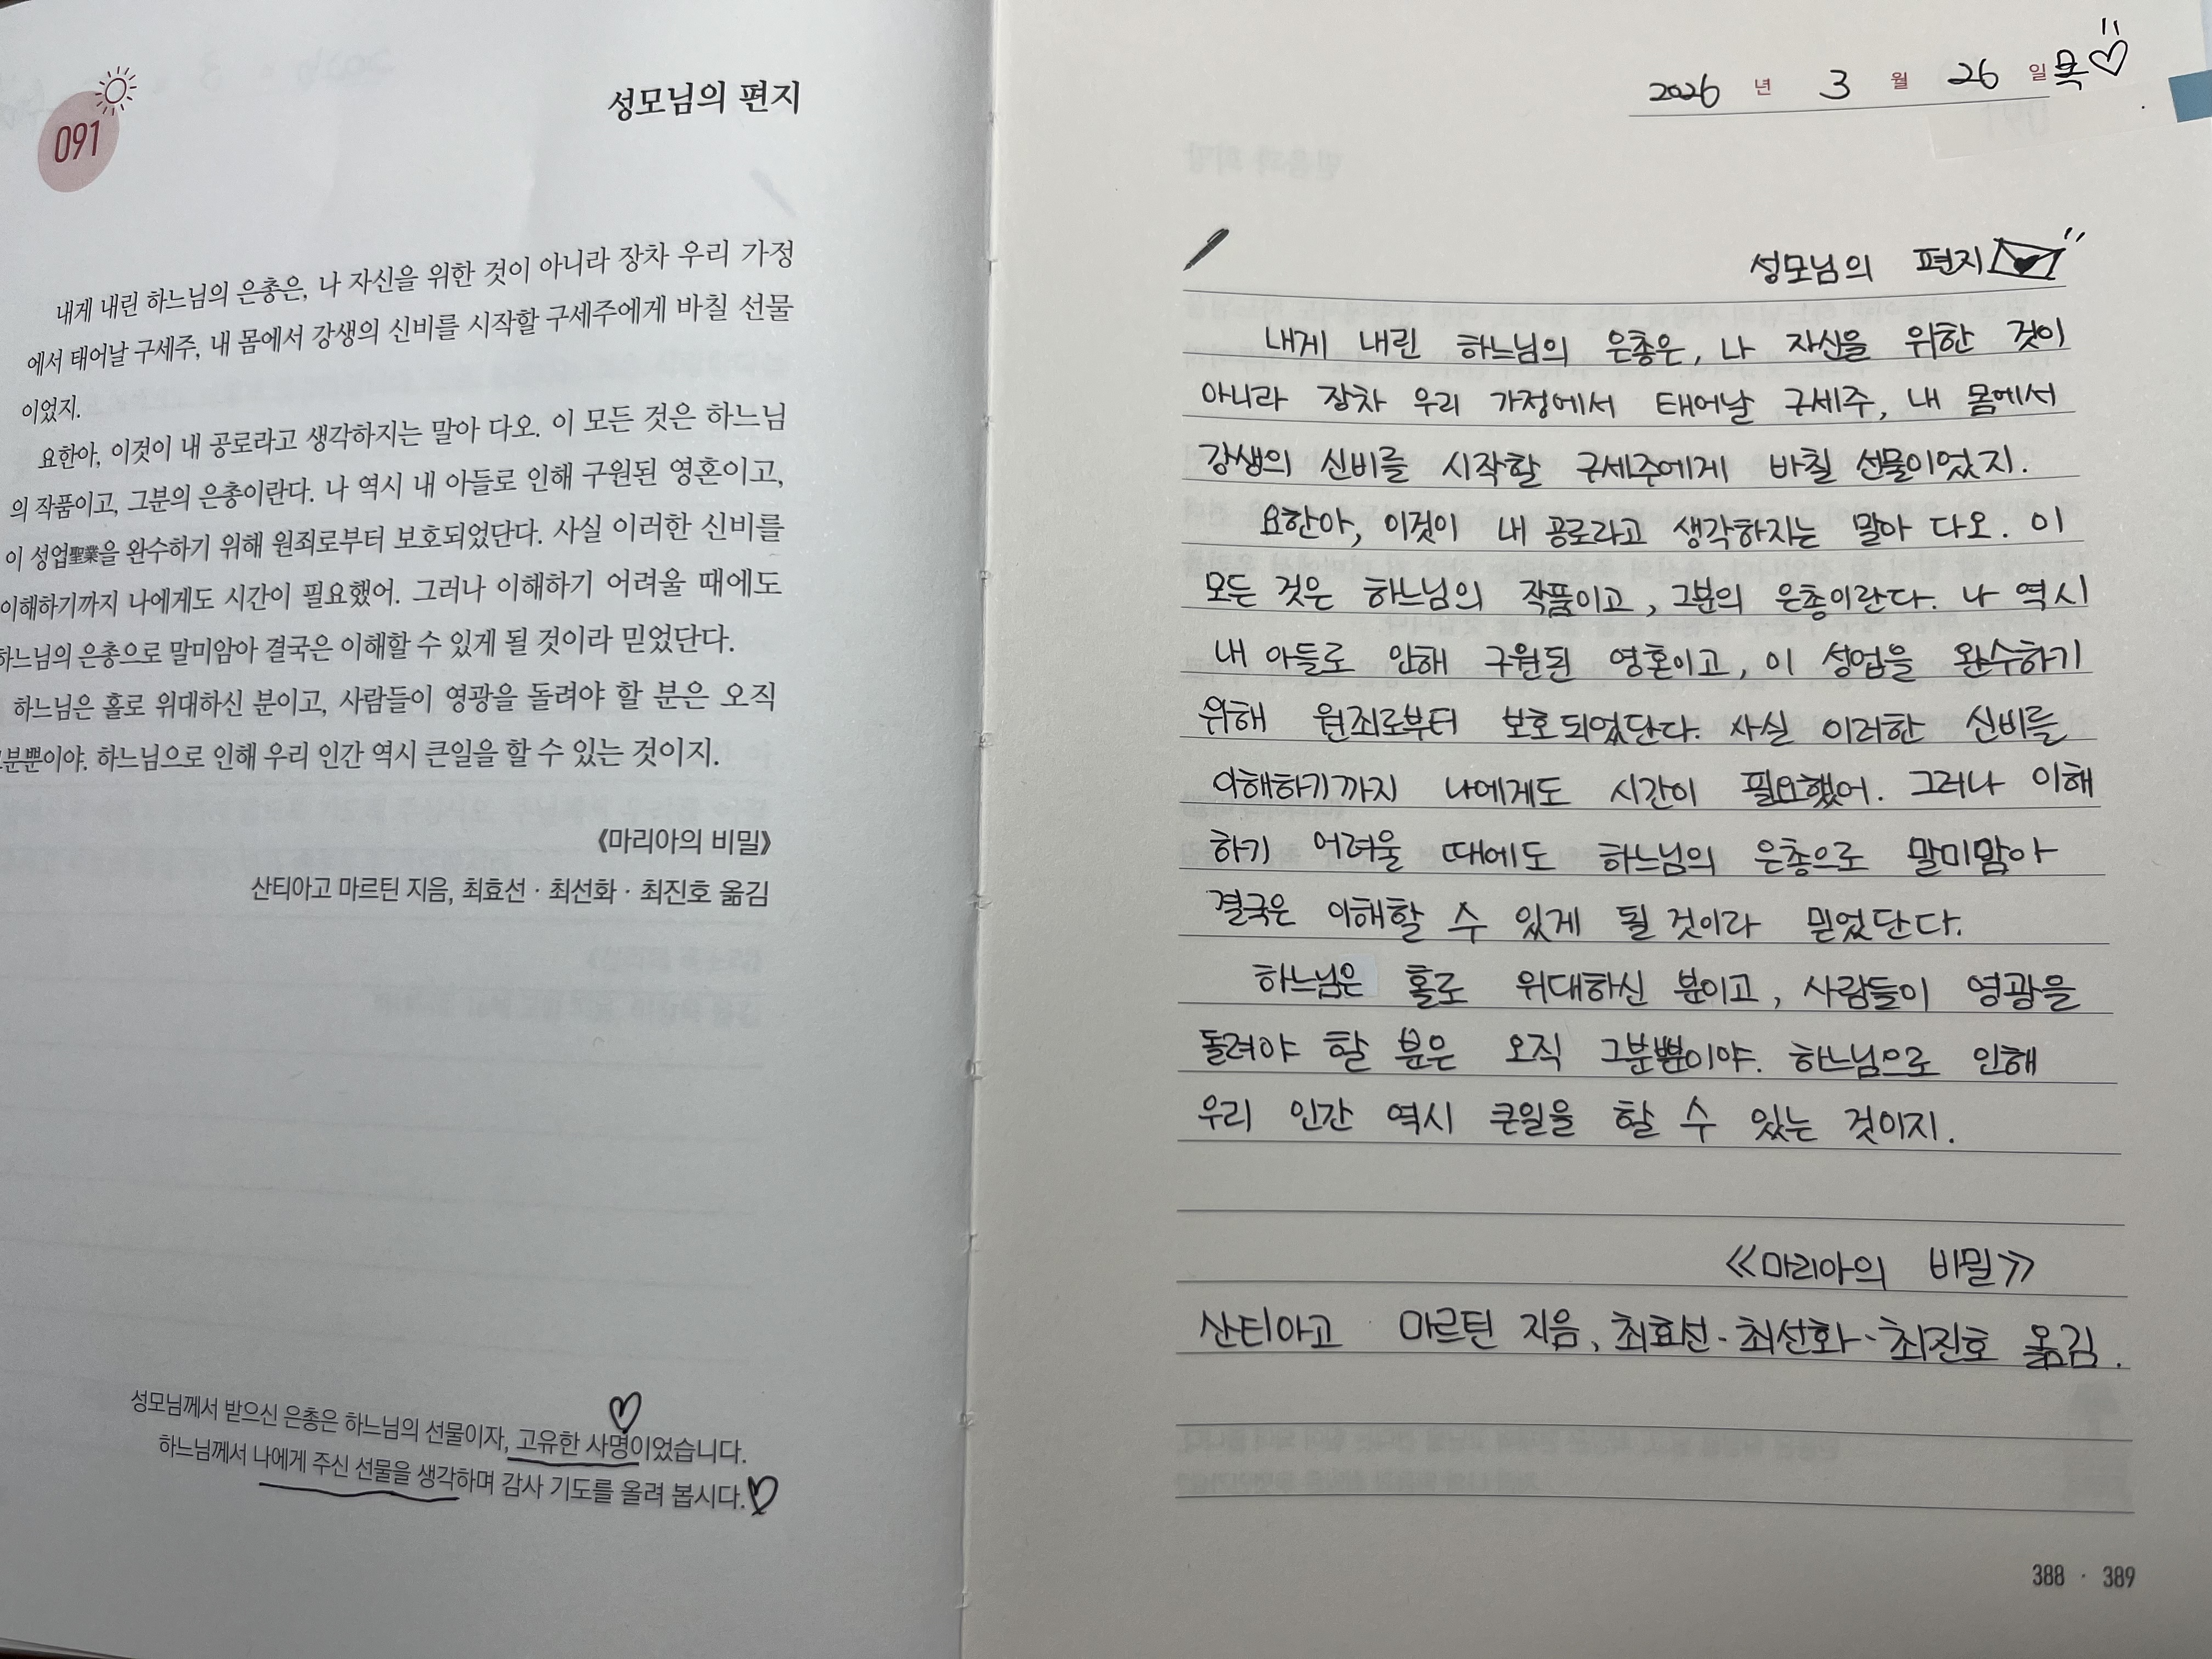 091
성모님의 편지
내게 내린 하느님의 은총은, 나 자신을 위한 것이 아니라 장차 우리 가정
에서 태어날 구세주, 내 몸에서 강생의 신비를 시작할 구세주에게 바칠 선물
이었지.
요한아, 이것이 내 공로라고 생각하지는 말아 다오. 이 모든 것은 하느님
의 작품이고, 그분의 은총이란다. 나 역시 내 아들로 인해 구원된 영혼이고,
이 성업聖業을 완수하기 위해 원죄로부터 보호되었단다. 사실 이러한 신비를
이해하기까지 나에게도 시간이 필요했어. 그러나 이해하기 어려울 때에도
하느님의 은총으로 말미암아 결국은 이해할 수 있게 될 것이라 믿었단다.
하느님은 홀로 위대하신 분이고, 사람들이 영광을 돌려야 할 분은 오직
그분뿐이야. 하느님으로 인해 우리 인간 역시 큰일을 할 수 있는 것이지.
《마리아의 비밀》
산티아고 마르틴 지음, 최효선 · 최선화 · 최진호 옮김
성모님께서 받으신 은총은 하느님의 선물이자, 고유한 사명이었습니다.
하느님께서 나에게 주신 선물을 생각하며 감사 기도를 올려 봅시다.
2026 년 3 월 26 일 목
성모님의 편지
내게 내린 하느님의 은총은, 나 자신을 위한 것이
아니라 장차 우리 가정에서 태어날 구세주, 내 몸에서
강생의 신비를 시작할 구세주에게 바칠 선물이었지.
요한아, 이것이 내 공로라고 생각하지는 말아 다오. 이
모든 것은 하느님의 작품이고, 그분의 은총이란다. 나 역시
내 아들로 인해 구원된 영혼이고, 이 성업을 완수하기
위해 원죄로부터 보호되었단다. 사실 이러한 신비를
이해하기까지 나에게도 시간이 필요했어. 그러나 이해
하기 어려울 때에도 하느님의 은총으로 말미암아
결국은 이해할 수 있게 될 것이라 믿었단다.
하느님은 홀로 위대하신 분이고, 사람들이 영광을
돌려야 할 분은 오직 그분뿐이야. 하느님으로 인해
우리 인간 역시 큰일을 할 수 있는 것이지.
《마리아의 비밀》
산티아고 마르틴 지음, 최효선·최선화·최진호 옮김.
388 · 389